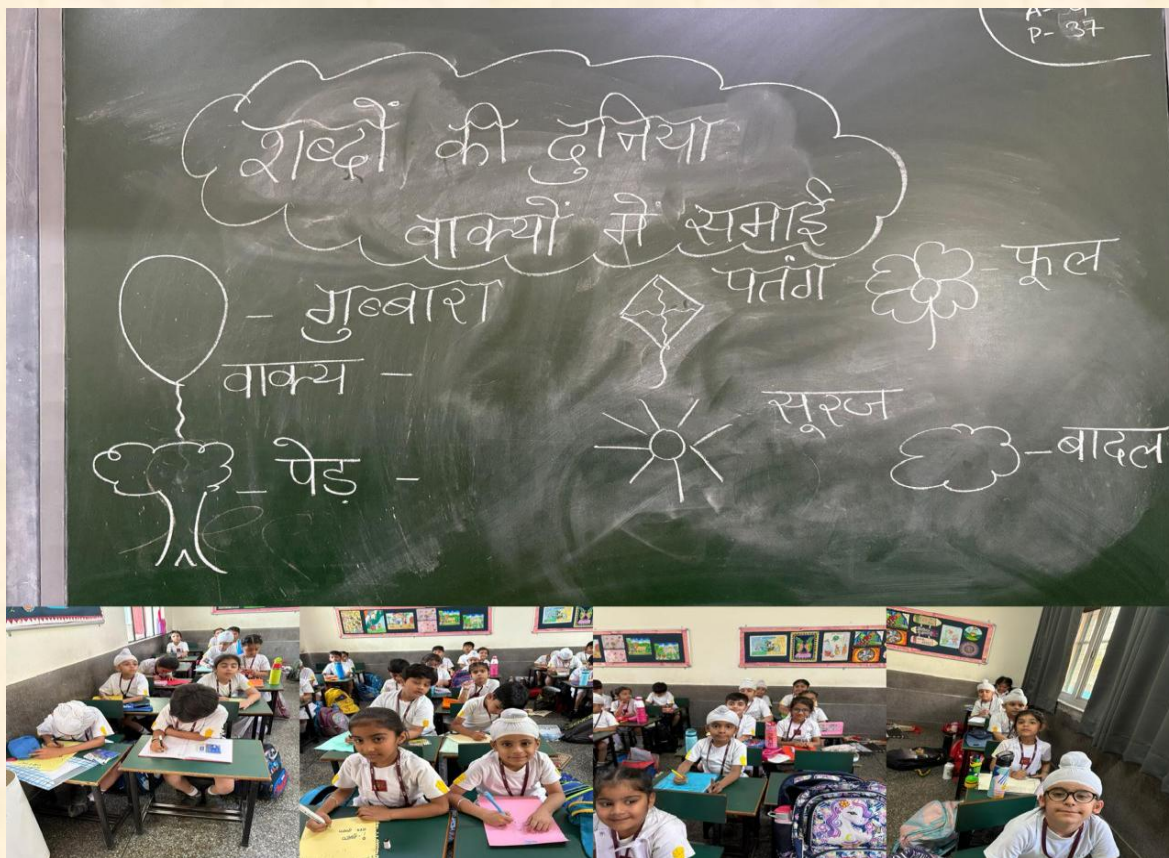 P- 37
शब्दों की दुनिया
वाक्यों में समाई
- गुब्बारा
वाक्य -
- पेड़ -
पतंग
- फूल
सूरज
- बादल